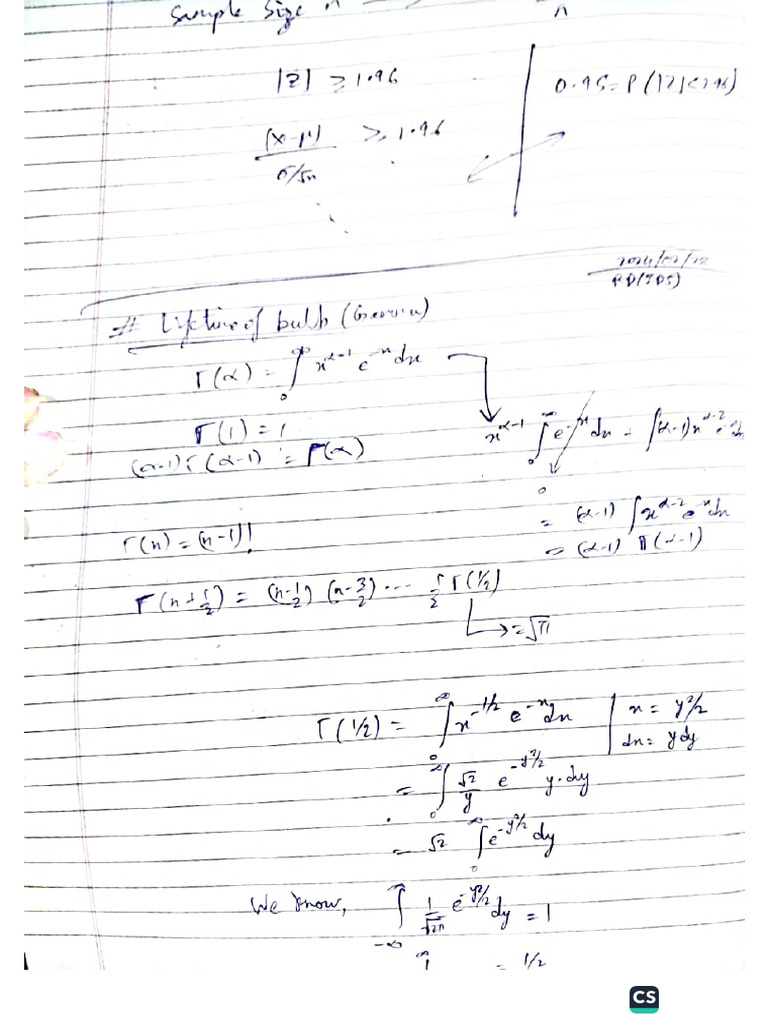 Sample Size n
n
|Z| ≥ 1.96
0.95 = P(|Z| < 1.96)
(x-μ) / σ/√n ≥ 1.96
PD(TDS)
# Lifetime of bulb (Gamma)
Γ(α) = ∫₀^∞ x^(α-1) e^(-x) dx
Γ(1) = 1
x^(α-1) ∫₀^∞ e^(-x) dx - ∫(α-1) x^(α-2) e^(-x) dx
(α-1) Γ(α-1) = Γ(α)
0
= (α-1) ∫x^(α-2) e^(-x) dx
Γ(n) = (n-1)!
= (α-1) Γ(α-1)
Γ(n+1/2) = (n-1/2) (n-3/2) ... 1/2 Γ(1/2)
→ = √π
Γ(1/2) = ∫₀^∞ x^(-1/2) e^(-x) dx | x = y²/2
dx = y dy
= ∫₀^∞ √2/y e^(-y²/2) y.dy
= √2 ∫₀^∞ e^(-y²/2) dy
We know, ∫_(-∞)^∞ 1/√2π e^(-y²/2) dy = 1
= 1/2
CS